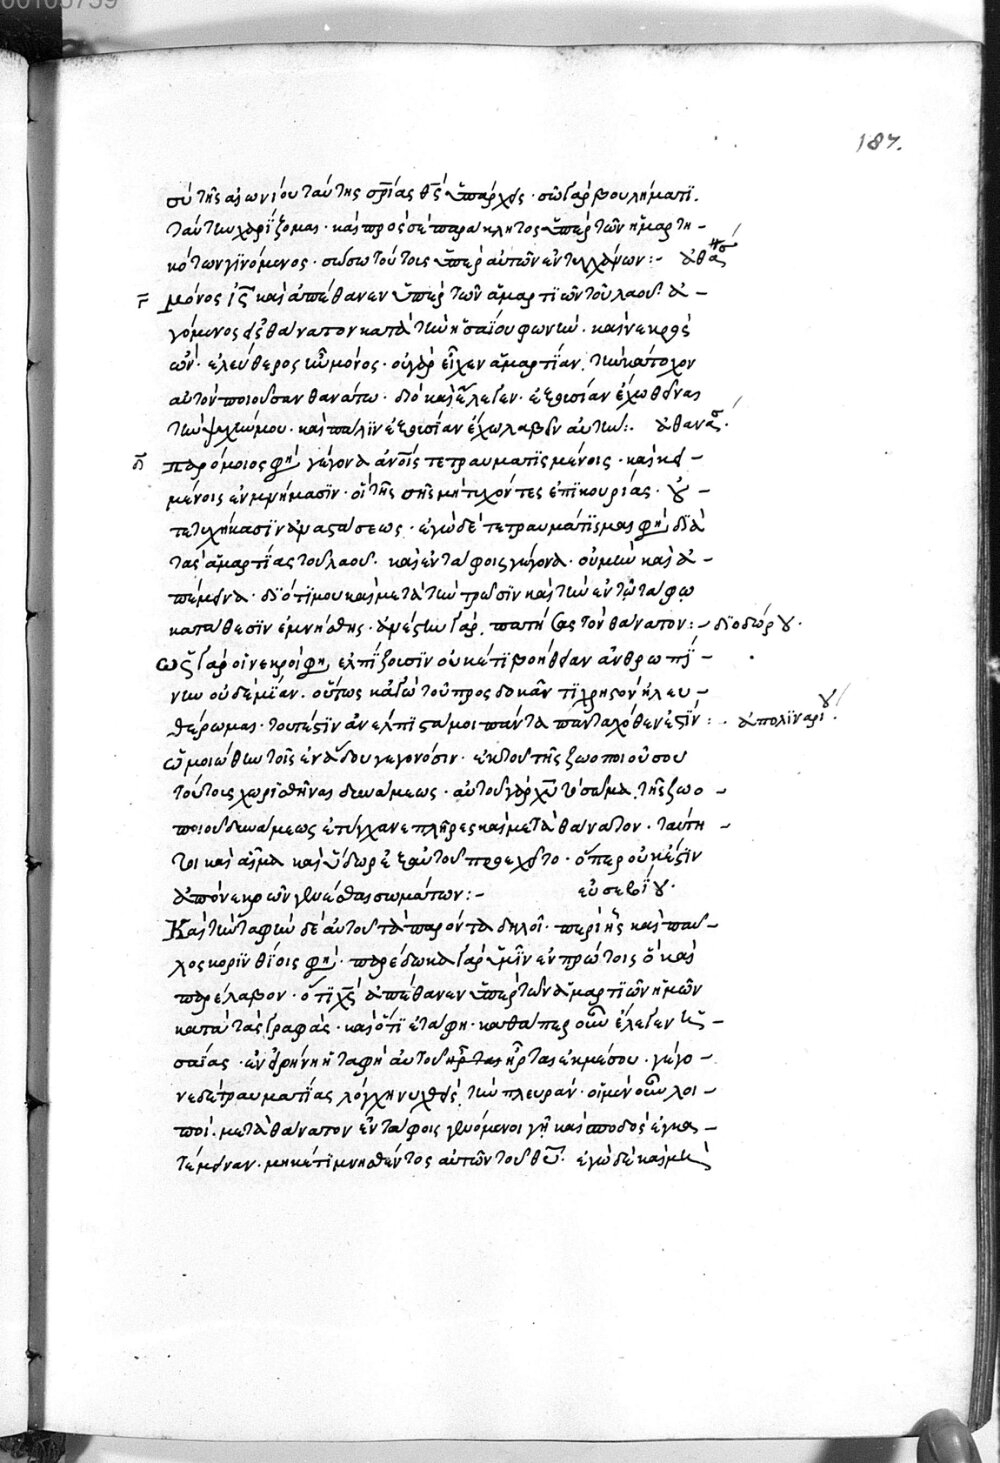 187.
σὺ τῆς αἰωνίου ταύτης σρίας θς ὑπάρχεις · σῶ γὰρ βουλήματι
ταύτην χαρίζομαι · καὶ πρὸς σὲ παράκλητος ὑπὲρ τῶν ἡμαρτη-
κότων γινόμενος · σώσω τούτοις ὑπὲρ αὐτῶν ἐντυγχάνων :- ἀθα
μόνος ις καὶ ἀπέθανεν ὑπὲρ τῶν ἁμαρτιῶν τοῦ λαοῦ· ἀ-
γόμενος εἰς θάνατον κατὰ τὴν ἡσαΐου φωνήν · καὶ νεκρὸς
ὤν · ἐλεύθερος ἦν μόνος · οὐ γὰρ εἶχεν ἁμαρτίαν, τὴν κάτοχον
αὐτὸν ποιοῦσαν θανάτω · διὸ καὶ ἔλεγεν · ἐξουσίαν ἔχω θεῖναι
τὴν ψυχήν μου · καὶ πάλιν ἐξουσίαν ἔχω λαβεῖν αὐτήν :. ἀθανασ.
παρόμοιος φη γέγονα ἀνοις τετραυματισμένοις · καὶ κει-
μένοις ἐν μνήμασιν · οἳ τῆς σῆς μὴ τυχόντες ἐπικουρίας · οὐ
τετυχήκασιν ἀναστάσεως · ἐγὼ δὲ τετραυμάτισμαι φη, διὰ
τὰς ἁμαρτίας τοῦ λαοῦ. καὶ ἐν τάφοις γέγονα · οὐ μὴν καὶ ἀ-
πέμεινα · διότι μου καὶ μετὰ τὴν τρῶσιν καὶ τὴν ἐν τῶ τάφω
κατάθεσιν ἐμνήσθης · ἀνέστην γὰρ, πατήσας τὸν θάνατον :- διοδώρου.
ὡς γὰρ οἱ νεκροί φη, ἐλπίζουσιν οὐκέτι βοήθειαν ἀνθρωπί-
νην οὐδεμίαν. οὕτως κἀγὼ τοῦ προσδοκᾶν τι χρηστὸν ἠλευ-
θέρωμαι · τουτέστιν ἀνέλπιστά μοι πάντα πανταχόθεν ἐστίν :. ἀπολιναρίου.
ὡμοιώθην τοῖς ἐν ἅδου γεγονόσιν · ἐκ τοῦ τῆς ζωοποιοῦ σου
τούτοις χωρισθῆναι δυνάμεως · αὐτοῦ γὰρ χυ τὸ σῶμα, τῆς ζωο-
ποιοῦ δυνάμεως ἐτύγχανε πλῆρες καὶ μετὰ θάνατον · ταύτη
τοι καὶ αἷμα καὶ ὕδωρ ἐξ αὐτοῦ προεχεῖτο · ὅπερ οὐκ ἔστιν
ἀπὸ νεκρῶν γενέσθαι σωμάτων :- εὐσεβίου.
Καὶ τὴν ταφὴν δὲ αὐτοῦ τὰ παρόντα δηλοῖ · περὶ ἧς καὶ παῦ-
λος κορινθίοις φη · παρέδωκα γὰρ ὑμῖν ἐν πρώτοις ὃ καὶ
παρέλαβον · ὅτι χς ἀπέθανεν ὑπὲρ τῶν ἁμαρτιῶν ἡμῶν
κατὰ τὰς γραφάς · καὶ ὅτι ἐτάφη · καθάπερ οὖν ἔλεγεν ἡ-
σαΐας · ἐν εἰρήνη ἡ ταφὴ αὐτοῦ ἦρται ἐκ μέσου · γέγο-
νε δὲ τραυματίας λόγχη νυχθεὶς, τὴν πλευράν · οἱ μὲν οὖν λοι-
ποί. μετὰ θάνατον ἐν τάφοις γενόμενοι γῆ καὶ σποδὸς ἐγκα-
τέμειναν · μηκέτι μνησθέντος αὐτῶν τοῦ θυ · ἐγὼ δὲ καὶ με